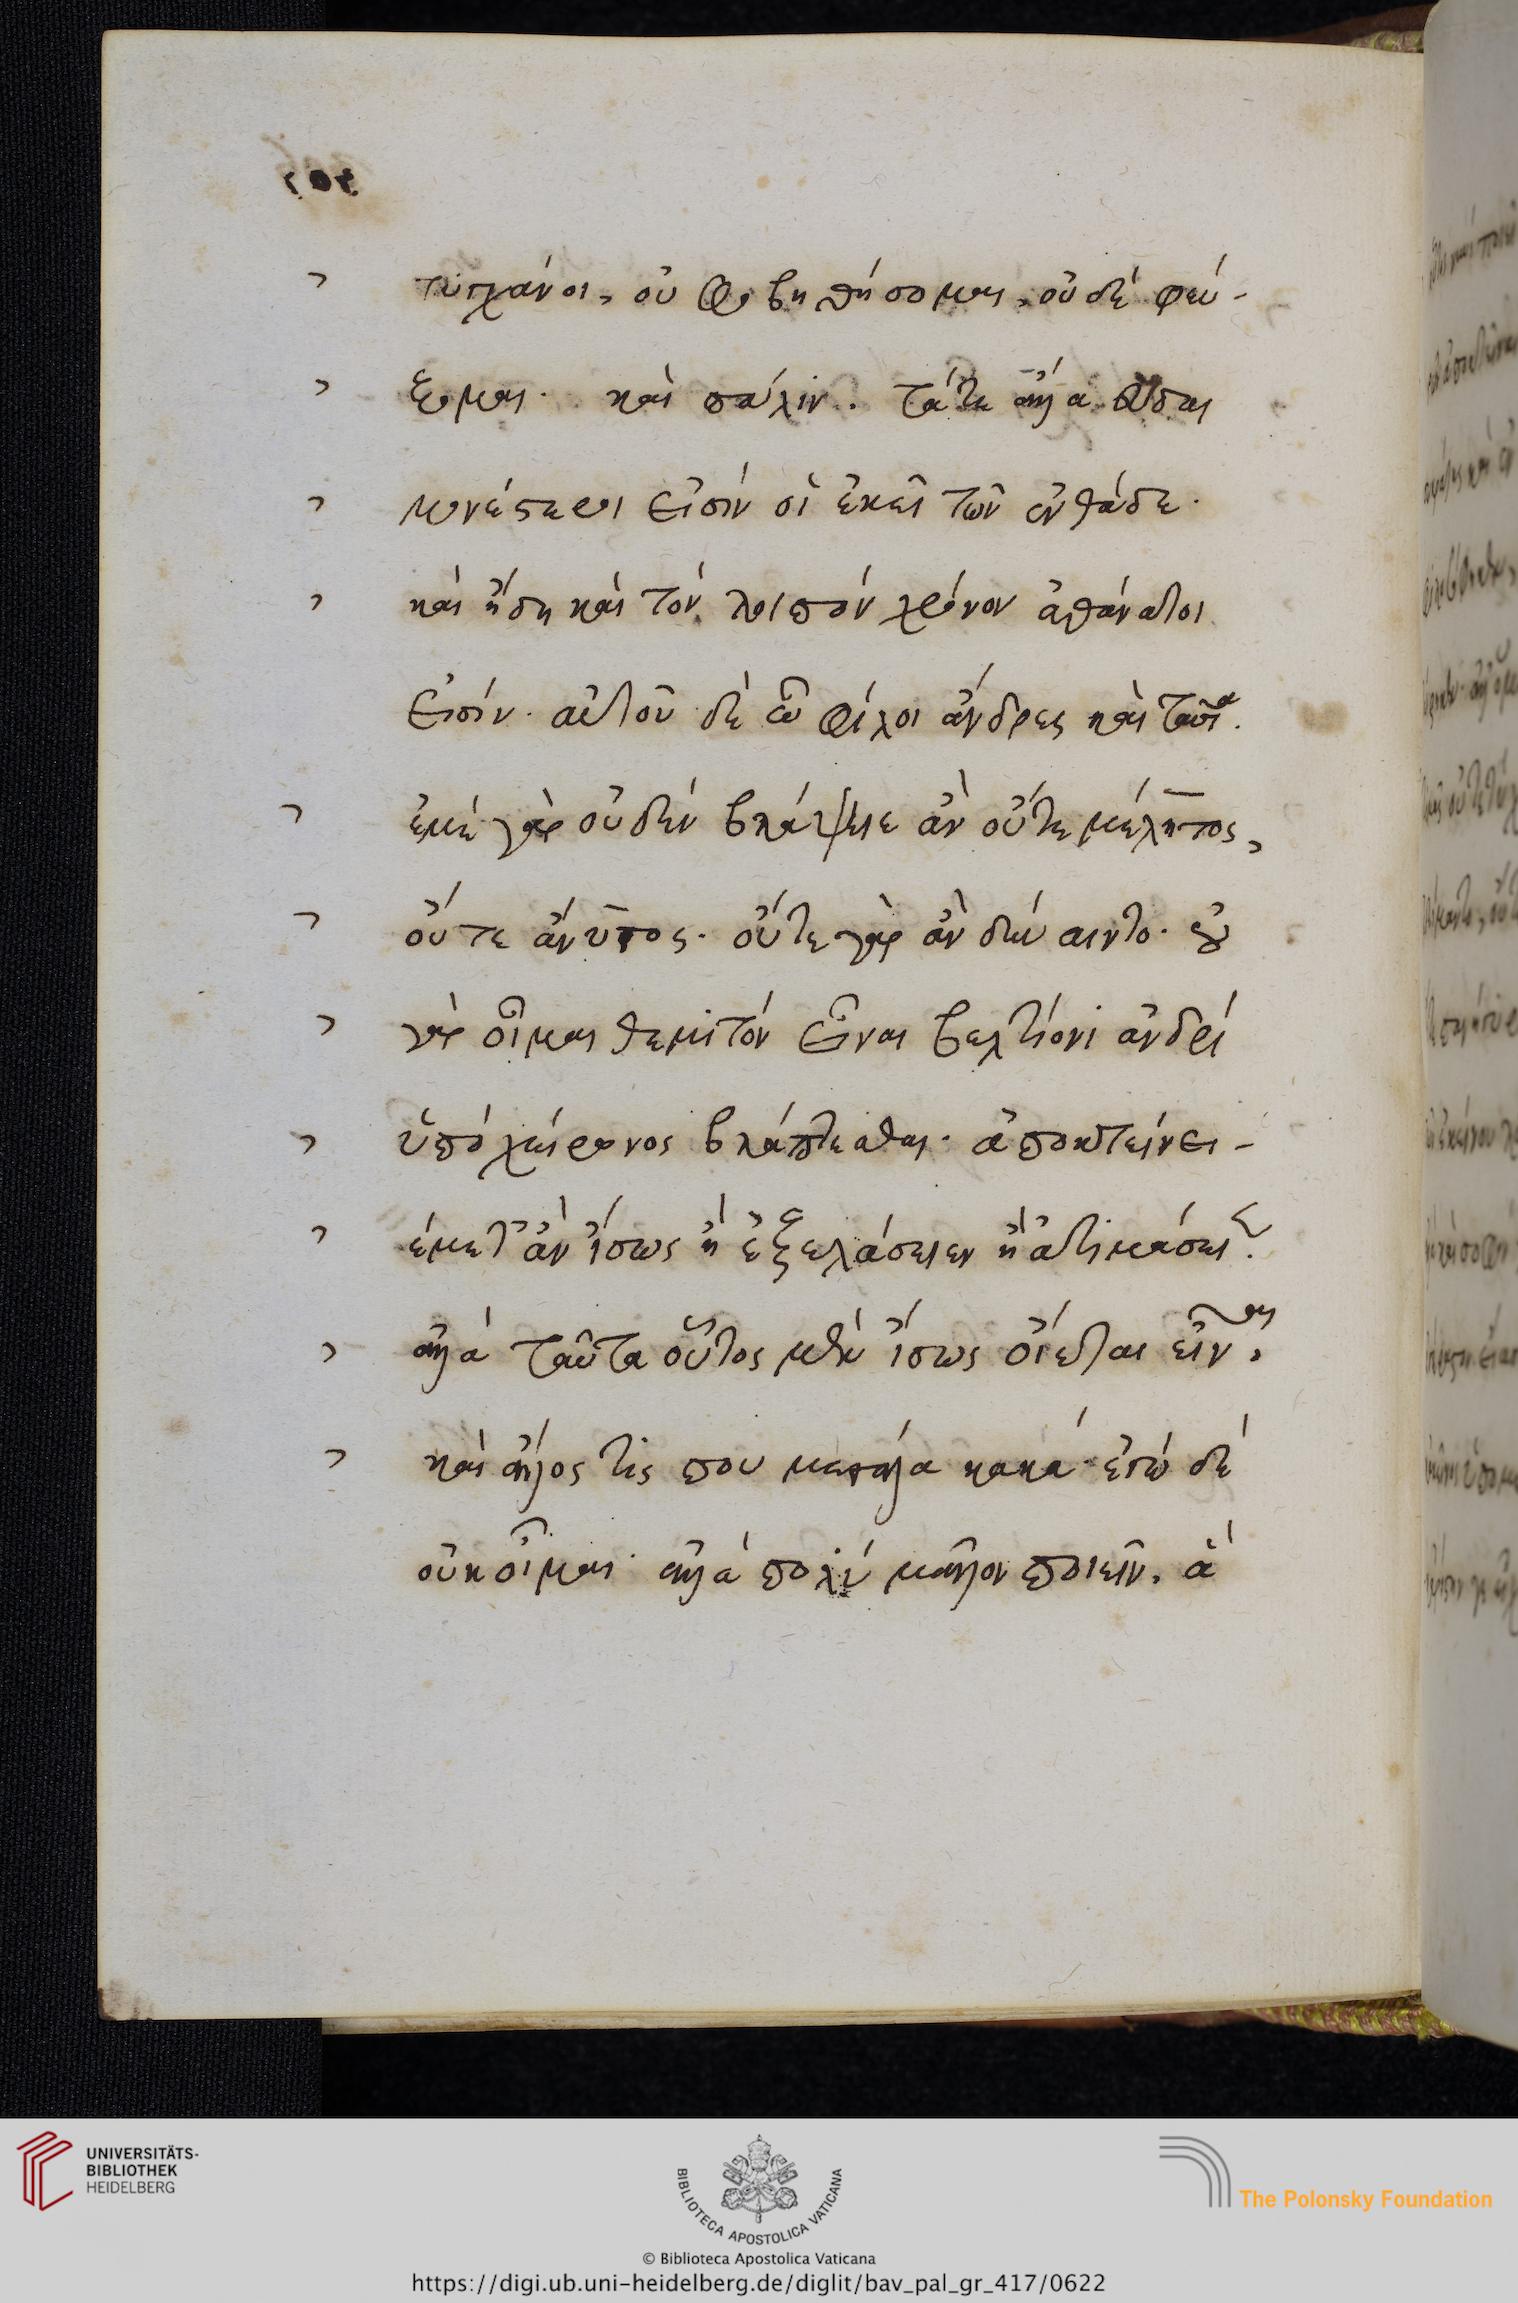 305
τυγχάνοι, οὐ φοβηθήσομαι, οὐδὲ φεύ-
ξομαι. καὶ πάλιν. τά τε ἄλλα εὐδαι
μονέστεροι εἰσὶν οἱ ἐκεῖ τῶν ἐνθάδε.
καὶ ἤδη καὶ τὸν λοιπὸν χρόνον ἀθάνατοι
εἰσίν. αὐτοῦ δὲ ὦ φίλοι ἄνδρες καὶ ταῦτα.
ἐμὲ γὰρ οὐδὲν βλάψειε ἂν οὔτε μέλητος,
οὔτε ἄνυτος. οὔτε γὰρ ἂν δύναιντο. οὐ
γὰρ οἶμαι θεμιτὸν εἶναι βελτίονι ἀνδρὶ
ὑπὸ χείρονος βλάπτεσθαι. ἀποκτείνει-
ε μετ' ἂν ἴσως ἢ ἐξελάσειεν ἢ ἀτιμάσει.
ἀλλὰ ταῦτα οὗτος μὲν ἴσως οἴεται εἶναι,
καὶ ἄλλος τίς που μεγάλα κακά. ἐγὼ δὲ
οὐκ οἶμαι. ἀλλὰ πολὺ μᾶλλον ποιεῖν, ἃ
UNIVERSITÄTS-
BIBLIOTHEK
HEIDELBERG
BIBLIOTECA APOSTOLICA VATICANA
The Polonsky Foundation
© Biblioteca Apostolica Vaticana
https://digi.ub.uni-heidelberg.de/diglit/bav_pal_gr_417/0622